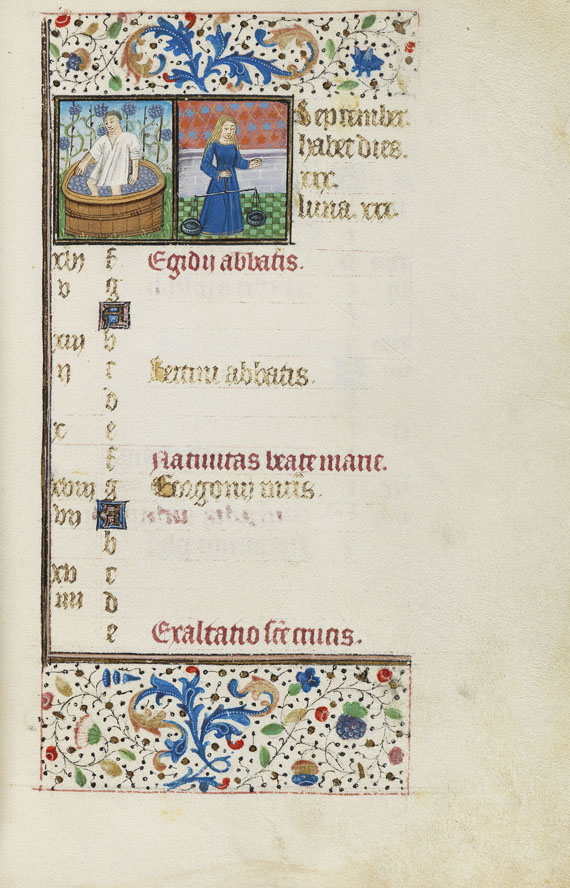 September
habet dies.
xxx.
luna. xxx.
xvi f Egidij abbatis.
v g
A
xiii b
ij c Bertini abbatis.
d
x e
f Natiuitas beate marie.
xviij g Gorgonij mris.
vij A
b
xv c
iiii d
e Exaltatio sce crucis.